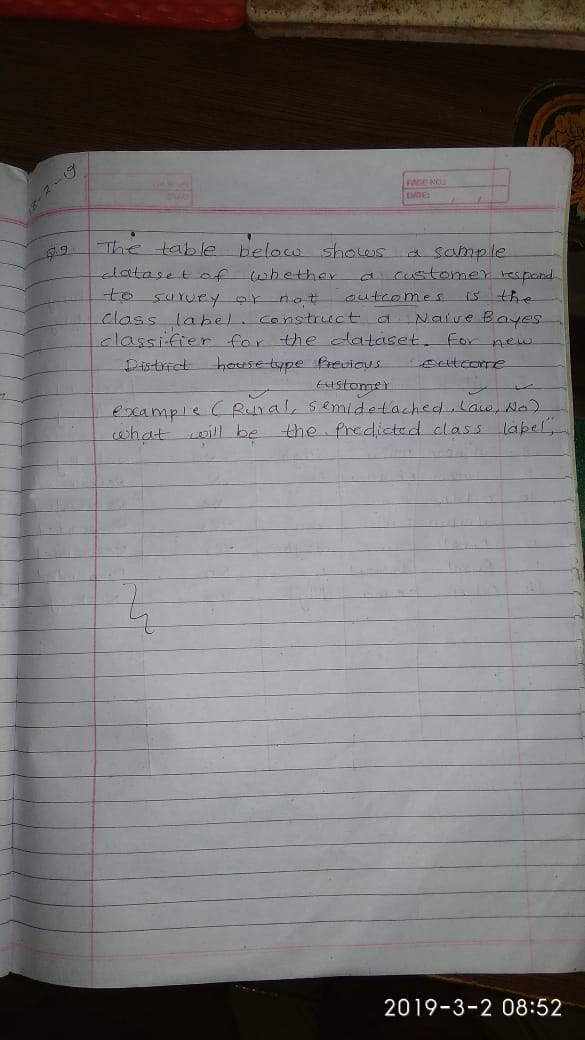 PAGE NO.:
DATE:
Q.9. The table below shows a sample
dataset of whether a customer respond
to survey or not outcomes is the
class label. construct a Naive Bayes
classifier for the dataset. for new
District housetype Previous outcome
customer
example (Rural, semidetached, Low, No)
what will be the predicted class label,
2019-3-2 08:52